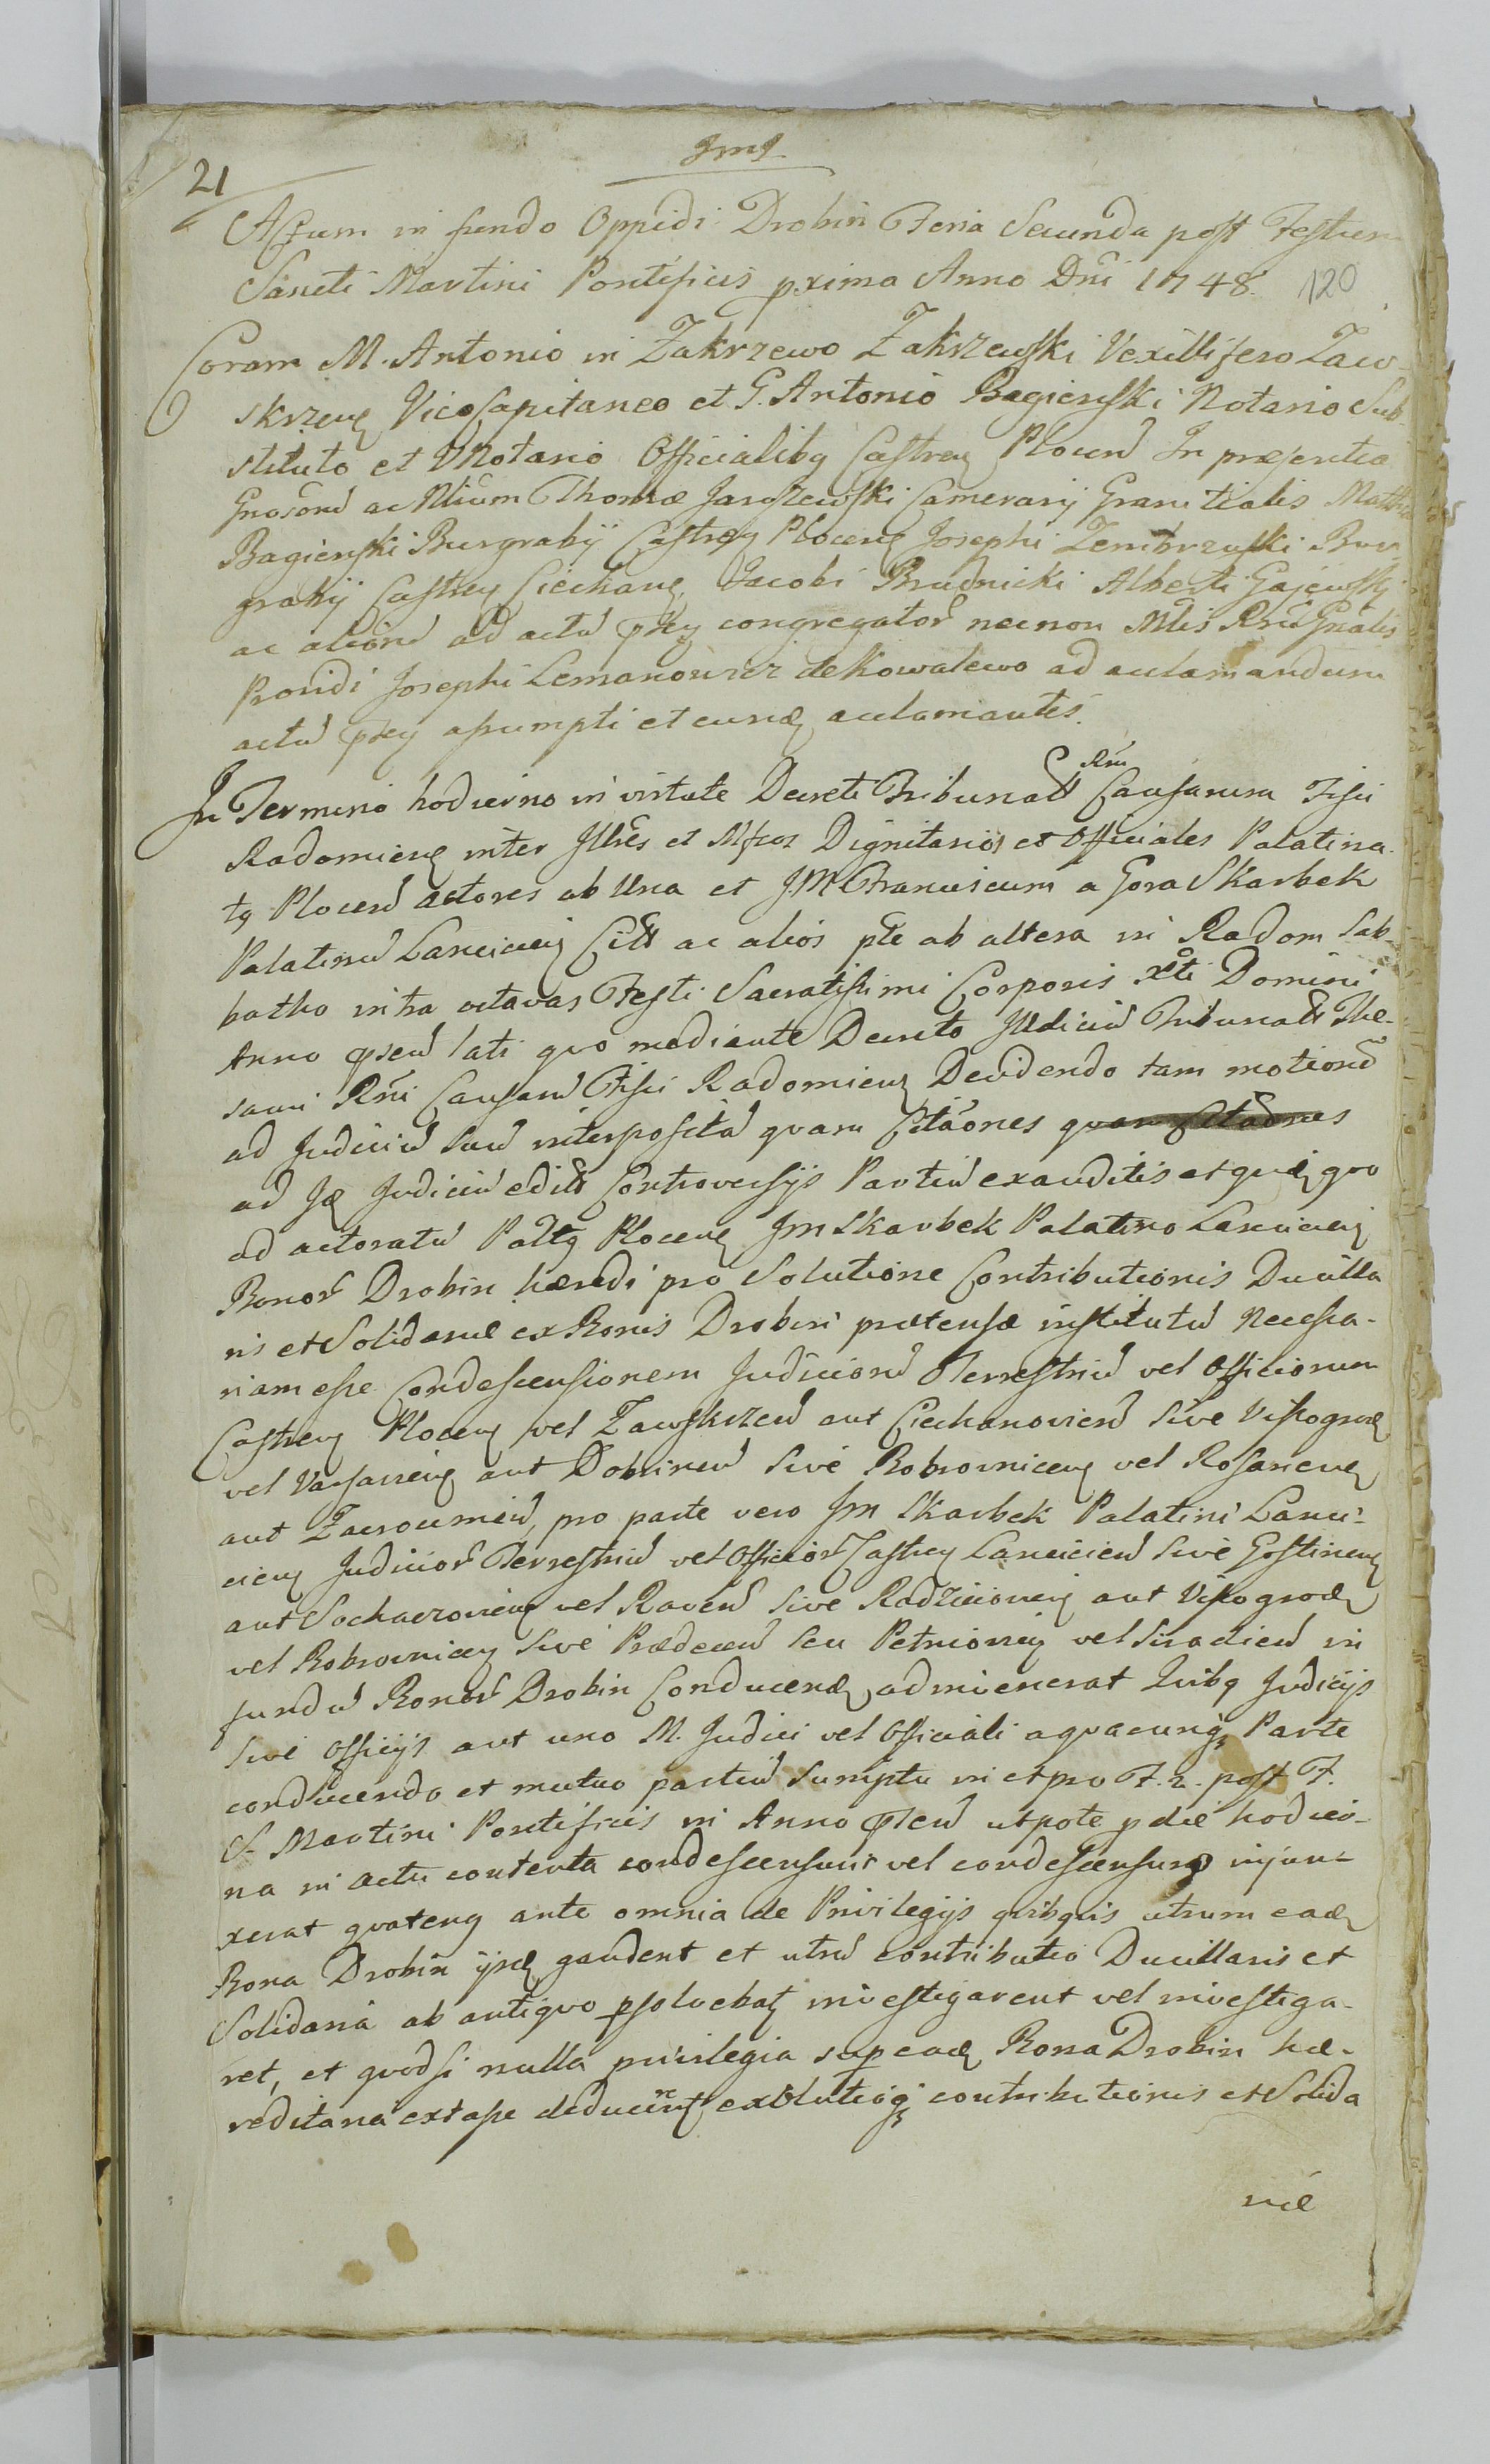 Jmj
21
Actum in fundo Oppidi Drobin Feria Secunda post Festum
Sancti Martini Pontificis proxima Anno Dni 1748.
120
Coram M. Antonio in Zakrzewo Zakrzewski Vexillifero Zaw-
skrzen Vice Capitaneo et G. Antonio Bagieński Notario Sub-
stituto et Notario Officialibq Castren Plocen In præsentia
Gnosorū ac Nlium Thomæ Jaroszewski Camerarij Granitialis Matthiæ
Bagieński Burgrabij Castren Plocen Josephi Zembrzuski Bur-
grabij Castren Ciechan Jacobi Brudnicki Alberti Gajewski
ac aliorū ad actū pntem congregator necnon Mtis Rni Gnalis
Providi Josephi Lemanowicz de Kowalewo ad aclamandum
actū pntem assumpti et eundem aclamantis.
In Termino hodierno in virtute Decreti Tribunali Rni Causarum Fisci
Radomien inter Illres et Mfcos Dignitarios et Officiales Palatina-
tq Plocen actores ab Una et JM Franciscum a Gora Skarbek
Palatinū Lancicien Citt ac alios pte ab altera in Radom Sab-
batho intra octavas Festi Sacratissimi Corporis Xti Domini
Anno pnti lati quo mediante Decreto Judiciū Tribunali The-
sauri Rni Causarū Fisci Radomien Decidendo tam motionē
ad Judiciū suū interpositā quam Citaōnes
ad Id Judiciū edit Controversijs Partiū exauditis et quo
ad actoratū Paltq Plocen Jm Skarbek Palatino Lancicien
Bonor Drobin hæredi pro Solutione Contributionis Ducilla
ris et Solidariæ ex Bonis Drobin prætensæ institutū Necessa-
riam esse Condescensionem Judiciorū Terrestriū vel Officiorum
Castren Plocen vel Zawskrzen aut Ciechanovien Sive Vissogroden
vel Varsavien aut Dobrinen Sive Bobrovnicen vel Rosanen
aut Zacrocimen, pro parte vero Jm Skarbek Palatini Lanci-
cien Judicior Terrestriū vel Officior Castren Lancicien Sive Gostinen
aut Sochaczovien vel Raven Sive Radziejovien aut Vissogroden
vel Bobrovnicen Sive Prædecen seu Petricovien vel Siradien in
fundū Bonor Drobin Conducend adinvenerat Quibq Judicijs
Sive Officijs aut uno M. Judici vel Officiali a quacunq Parte
conducendo et mutuo partiū Sumptu in et pro F. 2. post F.
S. Martini Pontificis in Anno pnti utpote p die hodier-
na in actu contenta condescensuris vel condescensuro injun-
xerat quatenq ante omnia de Privilegijs quibqvis utrum eadem
Bona Drobin ijsdem gaudent et utrū contributio Ducillaris et
Solidaria ab antiquo psolvebat investigarent vel investiga-
ret, et quodsi nulla privilegia sup eadem Bona Drobin hæ-
reditaria extasse deducerent, exolutioq contributionis et Solida
riæ